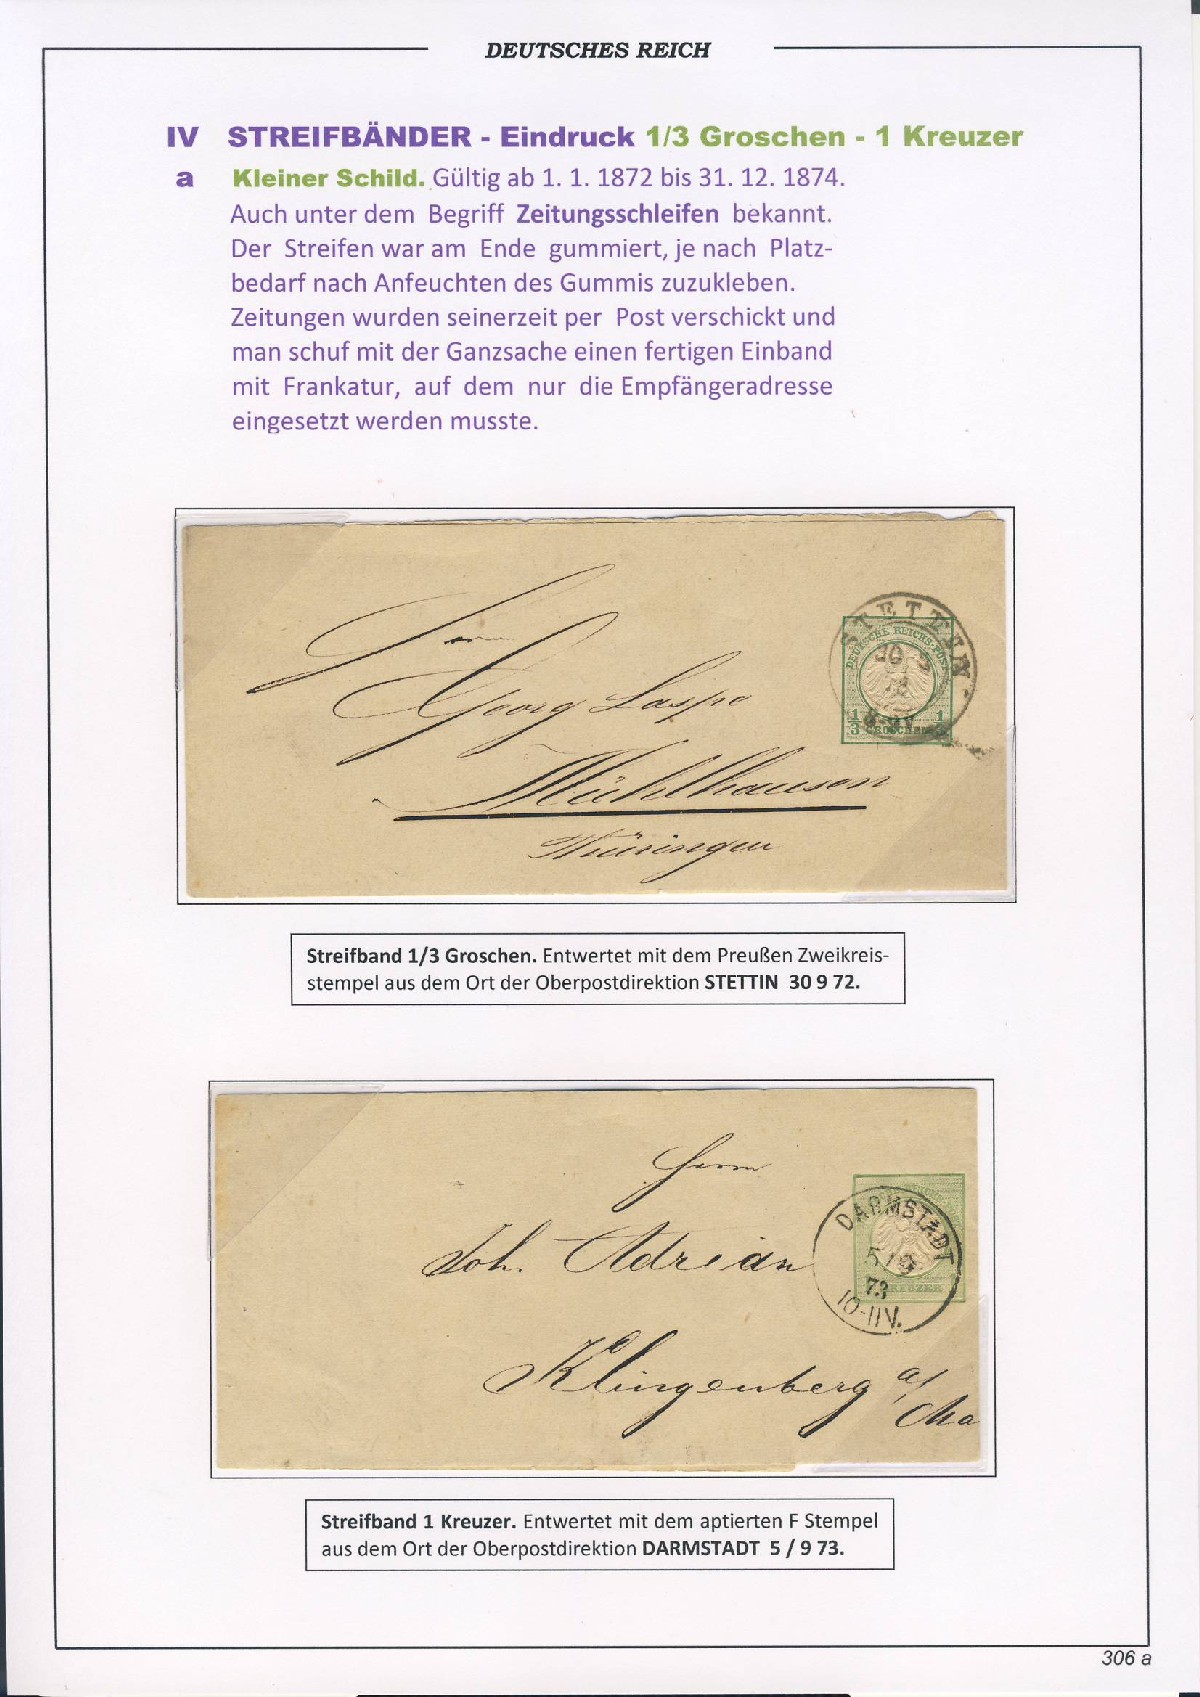 DEUTSCHES REICH
IV STREIFBÄNDER - Eindruck 1/3 Groschen - 1 Kreuzer
a Kleiner Schild. Gültig ab 1. 1. 1872 bis 31. 12. 1874.
Auch unter dem Begriff Zeitungsschleifen bekannt.
Der Streifen war am Ende gummiert, je nach Platz-
bedarf nach Anfeuchten des Gummis zuzukleben.
Zeitungen wurden seinerzeit per Post verschickt und
man schuf mit der Ganzsache einen fertigen Einband
mit Frankatur, auf dem nur die Empfängeradresse
eingesetzt werden musste.
STETTIN
DEUTSCHE REICHS-POST
1/3 GROSCHEN 1
Georg Laspe
Mühlhausen
Thüringen
Streifband 1/3 Groschen. Entwertet mit dem Preußen Zweikreis-
stempel aus dem Ort der Oberpostdirektion STETTIN 30 9 72.
Herrn
Joh. Adrian
Klingenberg a/
Ma
DARMSTADT
5/9
73
10-11V.
KREUZER
Streifband 1 Kreuzer. Entwertet mit dem aptierten F Stempel
aus dem Ort der Oberpostdirektion DARMSTADT 5 / 9 73.
306 a